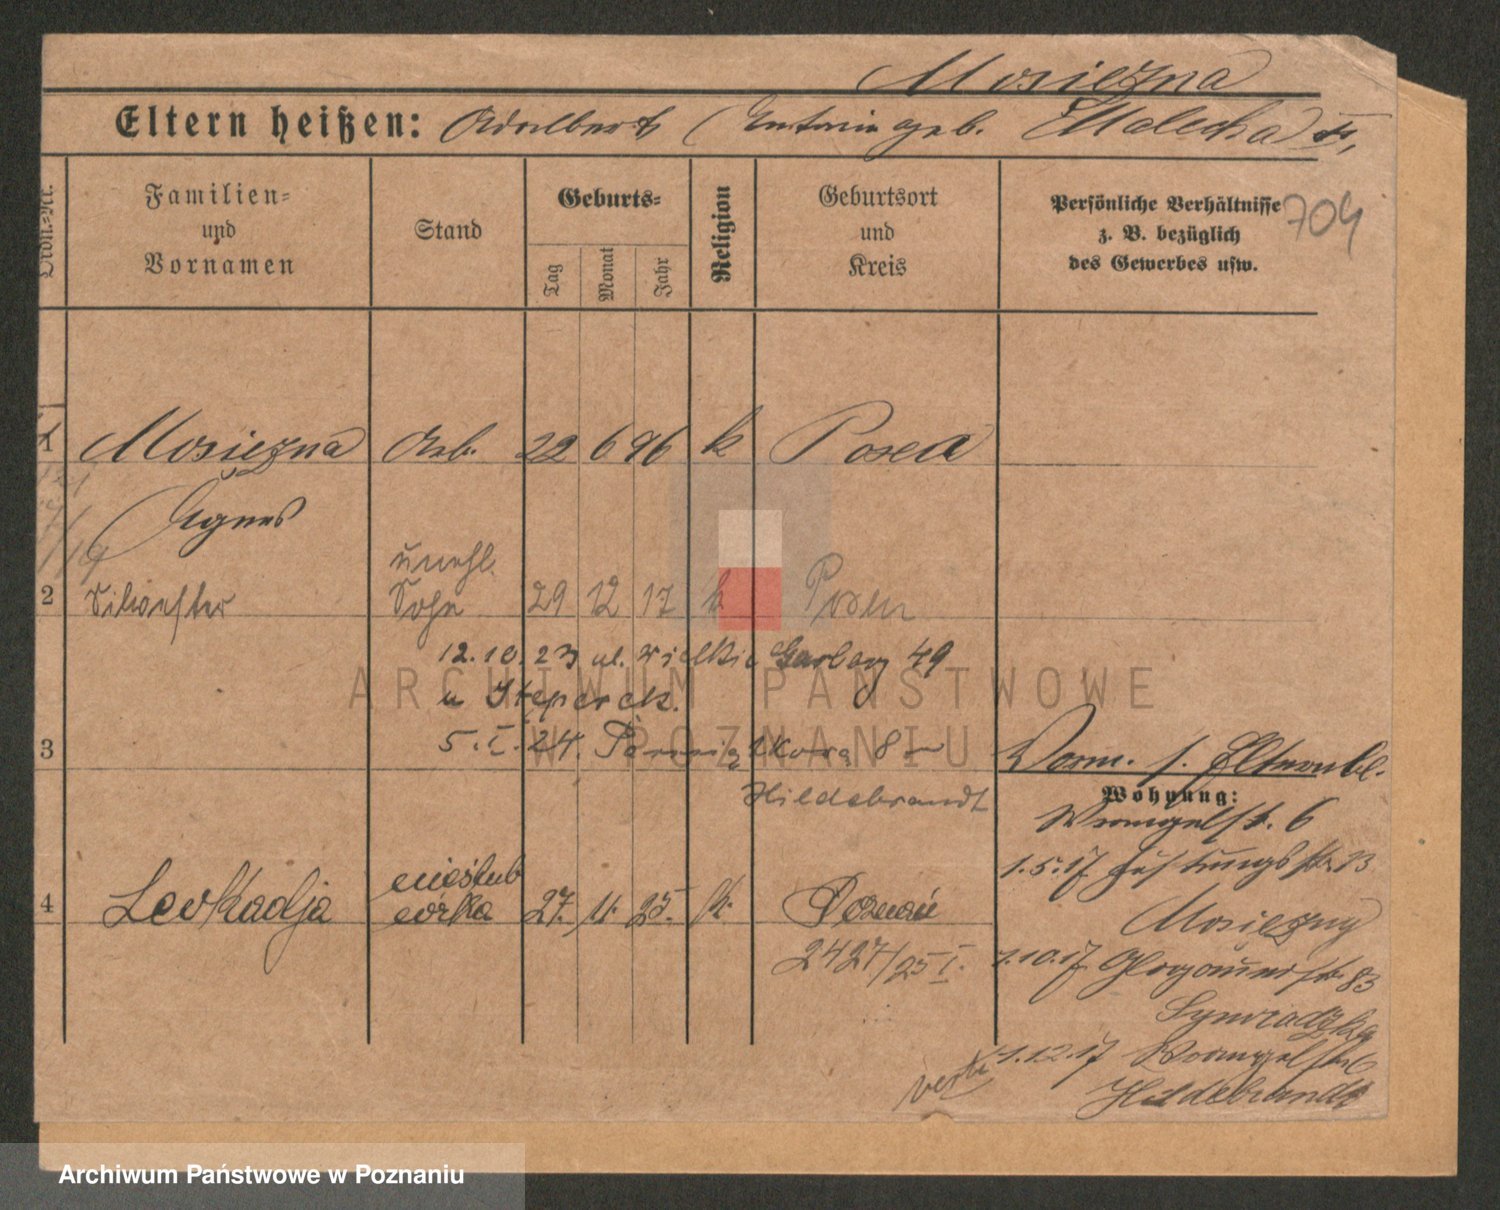 Mosiężna
Eltern heißen: Adalbert (Antonie geb. Malecha)
Ordn.-Nr.
Familien-
und
Vornamen
Stand
Geburts-
Tag
Monat
Jahr
Religion
Geburtsort
und
Kreis
Persönliche Verhältnisse
z. B. bezüglich
des Gewerbes usw.
704
1 Mosiężna Arb. 22 6 96 k Posen
Agnes
unehl.
2 Silvester Sohn 29 12 17 k Posen
12.10.23 ul. Wielkie Garbary 49
u
5.I.24. 8
3
Vorm. s. Elternbl.
Wohnung:
Hildebrandt
Wrangelstr. 6
1.5.17 13
4 Leokadja nieślub córka 27. 11. 25. k. Poznań
Mosiężny
2427/25 I.
1.10.17 Glogauerstr. 83
1.12.17 Wrangelstr 6
Hildebrandt
verte
ARCHIWUM PAŃSTWOWE
W POZNANIU
Archiwum Państwowe w Poznaniu